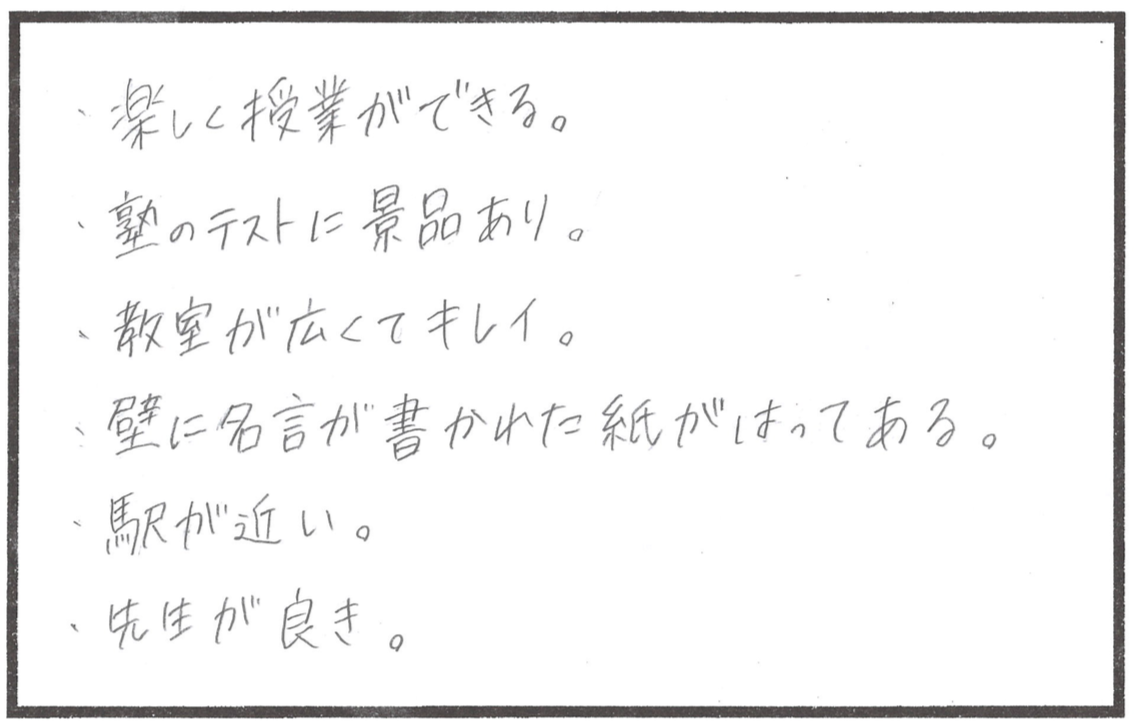 ・楽しく授業ができる。
・塾のテストに景品あり。
・教室が広くてキレイ。
・壁に名言が書かれた紙がはってある。
・駅が近い。
・先生が良き。